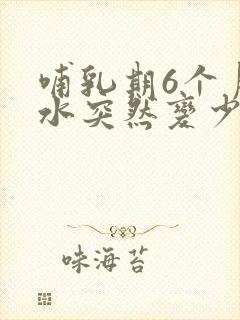 哺乳期6个
水突然变少
味海苔